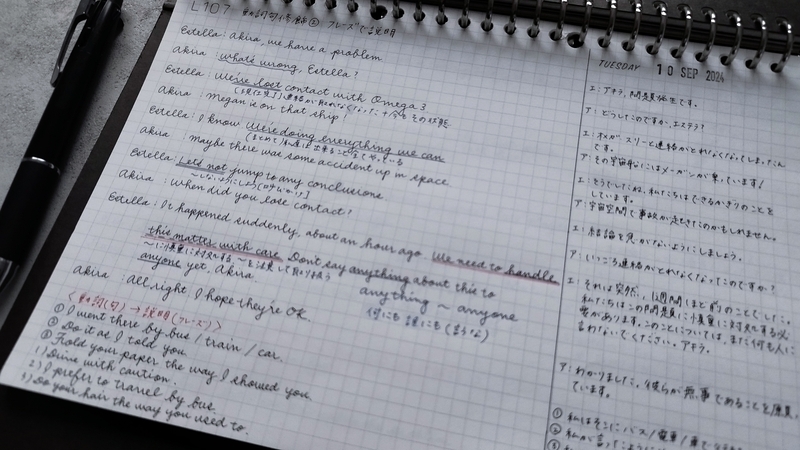 L107 動詞句修飾② フレーズで説明
Estella: Akira, we have a problem
Akira: What's wrong, Estella?
Estella: We've lost contact with Omega 3
Akira: Megan is on that ship!
Estella: I know. We're doing everything we can
Akira: maybe there was some accident up in space.
Estella: Let's not jump to any conclusions.
Akira: When did you lose contact?
Estella: It happened suddenly, about an hour ago. We need to handle
this matter with care. Don't say anything about this to
anyone yet, Akira.
anything ~ anyone
何にも 誰にも (言うな)
Akira: All right. I hope they're OK.
<動詞(句) → 説明(フレーズ)>
① I went there by bus / train / car.
② Do it as I told you.
③ Hold your paper the way I showed you.
1) Drive with caution.
2) I prefer to travel by bus.
3) Do your hair the way you used to.
TUESDAY 10 SEP 2024
エ: アキラ、問題発生です。
ア: どうしたのですか、エステラ?
エ: オメガ スリーと連絡がとれなくなってしまったん
です。
ア: その宇宙船にはメーガンが乗っています!
エ: そうでしたね。私たちはできるかぎりのことを
しています。
ア: 宇宙空間で事故が起きたのかもしれません。
エ: 結論を急がないようにしましょう。
ア: いつごろ連絡がとれなくなったのですか?
エ: それは突然、1週間ほど前のことでした。
私たちはこの問題に慎重に対処する必
要があります。このことについては、まだ何も人に
言わないでください。アキラ。
ア: わかりました。彼らが無事であることを願
ています。
① 私はそこに バス/電車/車で
② 私が言ったように
③